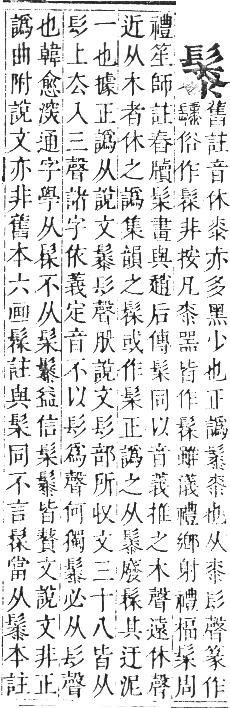 䰍舊註音休桼赤多黑少也正譌䰍桼也从桼髟聲篆作
俗作髹非按凡桼噐皆作髹雖儀禮鄉射禮楅髤周
禮笙師註舂牘髤畫與趙后傳髤同以音義推之木聲遠休聲
近从木者休之譌集韻之髹或作髤正譌之从䰍廢髹其迂泥
一也據正譌从說文䰍髟聲㕥說文髟部所收文三十八皆从
髟上厺入三聲諸字依義定音不以髟爲聲何獨䰍必从髟聲
也韓愈淡通字學从髹不从髤䰍益信髤䰍皆贅文說文非正
譌曲附說文亦非舊本六画髹註與髤同不言髹當从䰍本註